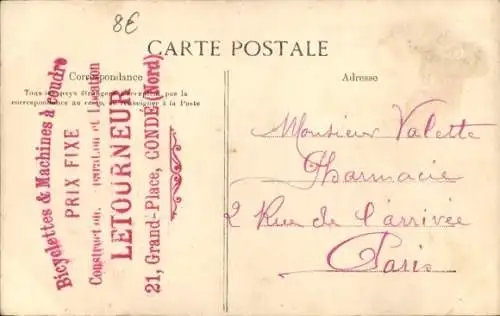 8€
CARTE POSTALE
Correspondance
Tous les pays étrangers n'acceptent pas la
correspondance au recto, se renseigner à la Poste
Adresse
Bicyclettes & Machines à coudre
PRIX FIXE
Construction, réparation et Location
LETOURNEUR
21, Grand-Place, CONDÉ (Nord)
Monsieur Valette
Pharmacie
2 Rue de l'arrivée
Paris